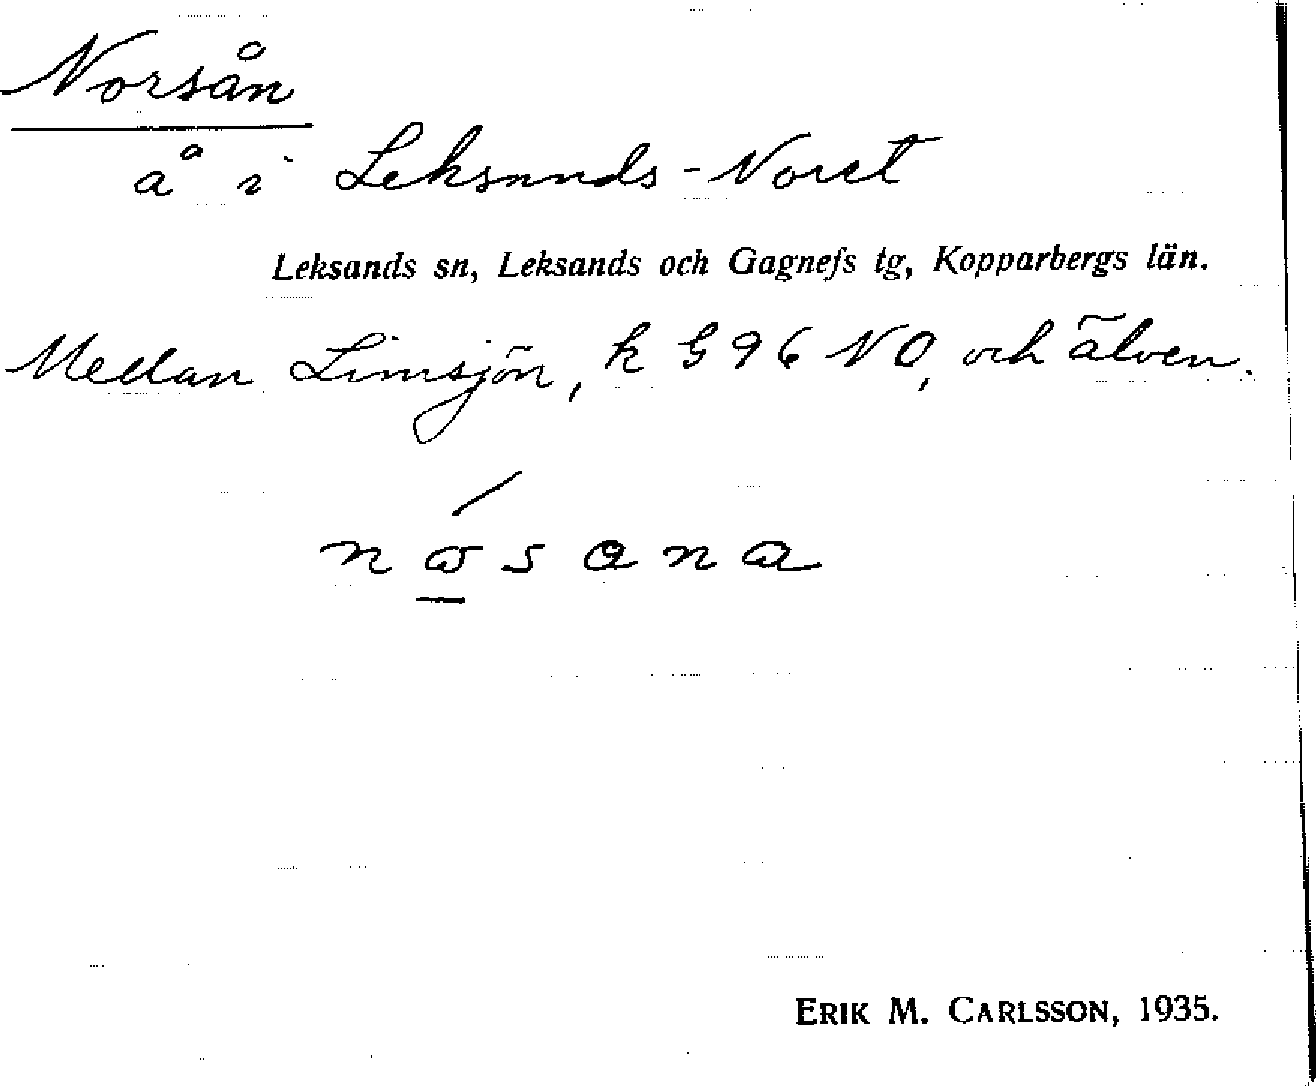 Norsån
å i Leksands-Noret
Leksands sn, Leksands och Gagnefs tg, Kopparbergs län.
Mellan Limsjön, k G 96 NO, och älven.
ERIK M. CARLSSON, 1935.